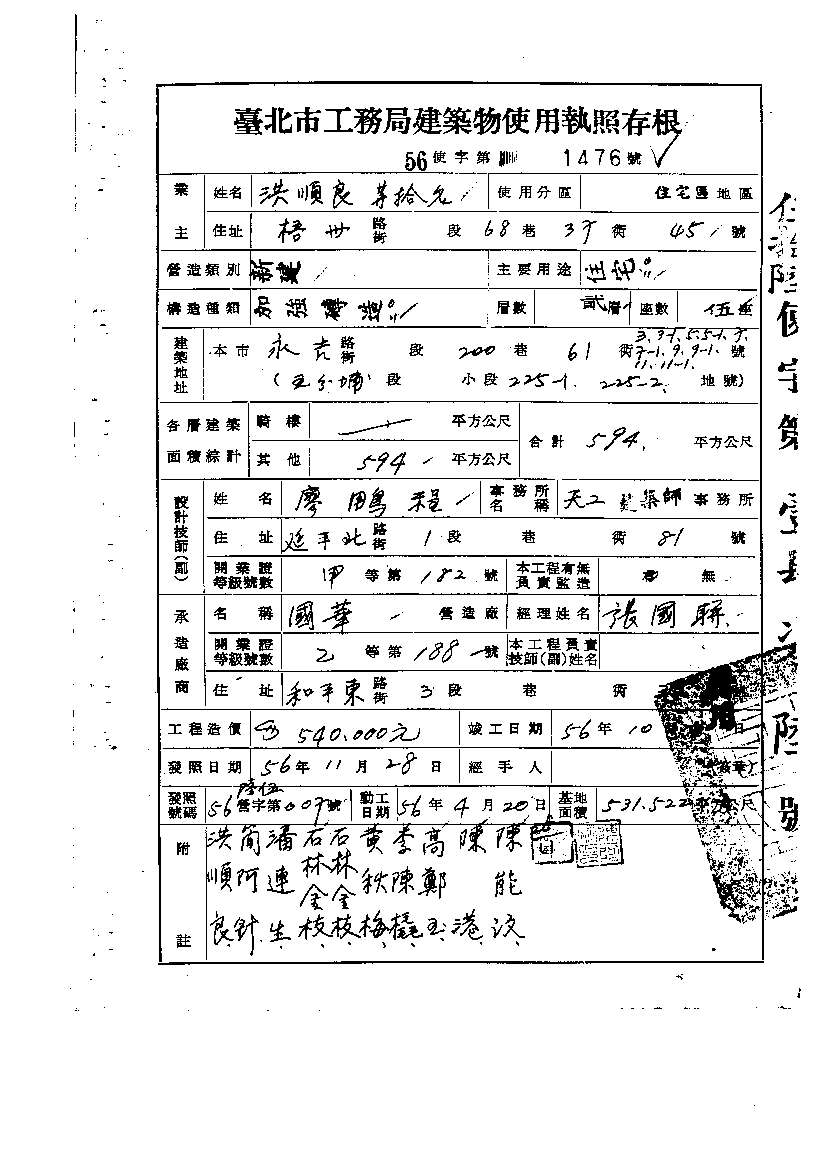 臺北市工務局建築物使用執照存根
56使字第 1476號
業主 姓名 洪順良等拾名 使用分區 住宅區地區
住址 梧州路街 段 68巷 37衖 45號
營造類別 新建 主要用途 住宅
構造種類 加強磚造 層數 貳層 座數 伍座
建築地址 本市 永吉路街 段 200巷 61衖 3.3-1.5.5-1.7.7-1.9.9-1.11.11-1.號
(五分埔)段 小段 225-1. 225-2. 地號)
各層建築面積綜計 騎樓 平方公尺 合計 594. 平方公尺
其他 594 平方公尺
設計技師(副) 姓名 廖鵬程 事務所名稱 天工建築師事務所
住址 延平北路街 1段 巷 衖 81號
開業證等級號數 甲等第182號 本工程有無負責監造 無
承造廠商 名稱 國華 營造廠 經理姓名 張國聯
開業證等級號數 乙等第188號 本工程負責技師(副)姓名
住址 和平東路街 3段 巷 衖
工程造價 540.000元 竣工日期 56年10 日
發照日期 56年11月28日 經手人
發照號碼 56陸伍營字第007號 動工日期 56年4月20日 基地面積 531.522平方公尺
附註 洪順良 簡阿針 潘連生 石林金枝 石林金枝 黃秋梅 李陳 高鄭玉 陳港 陳能
使字第壹 陸號